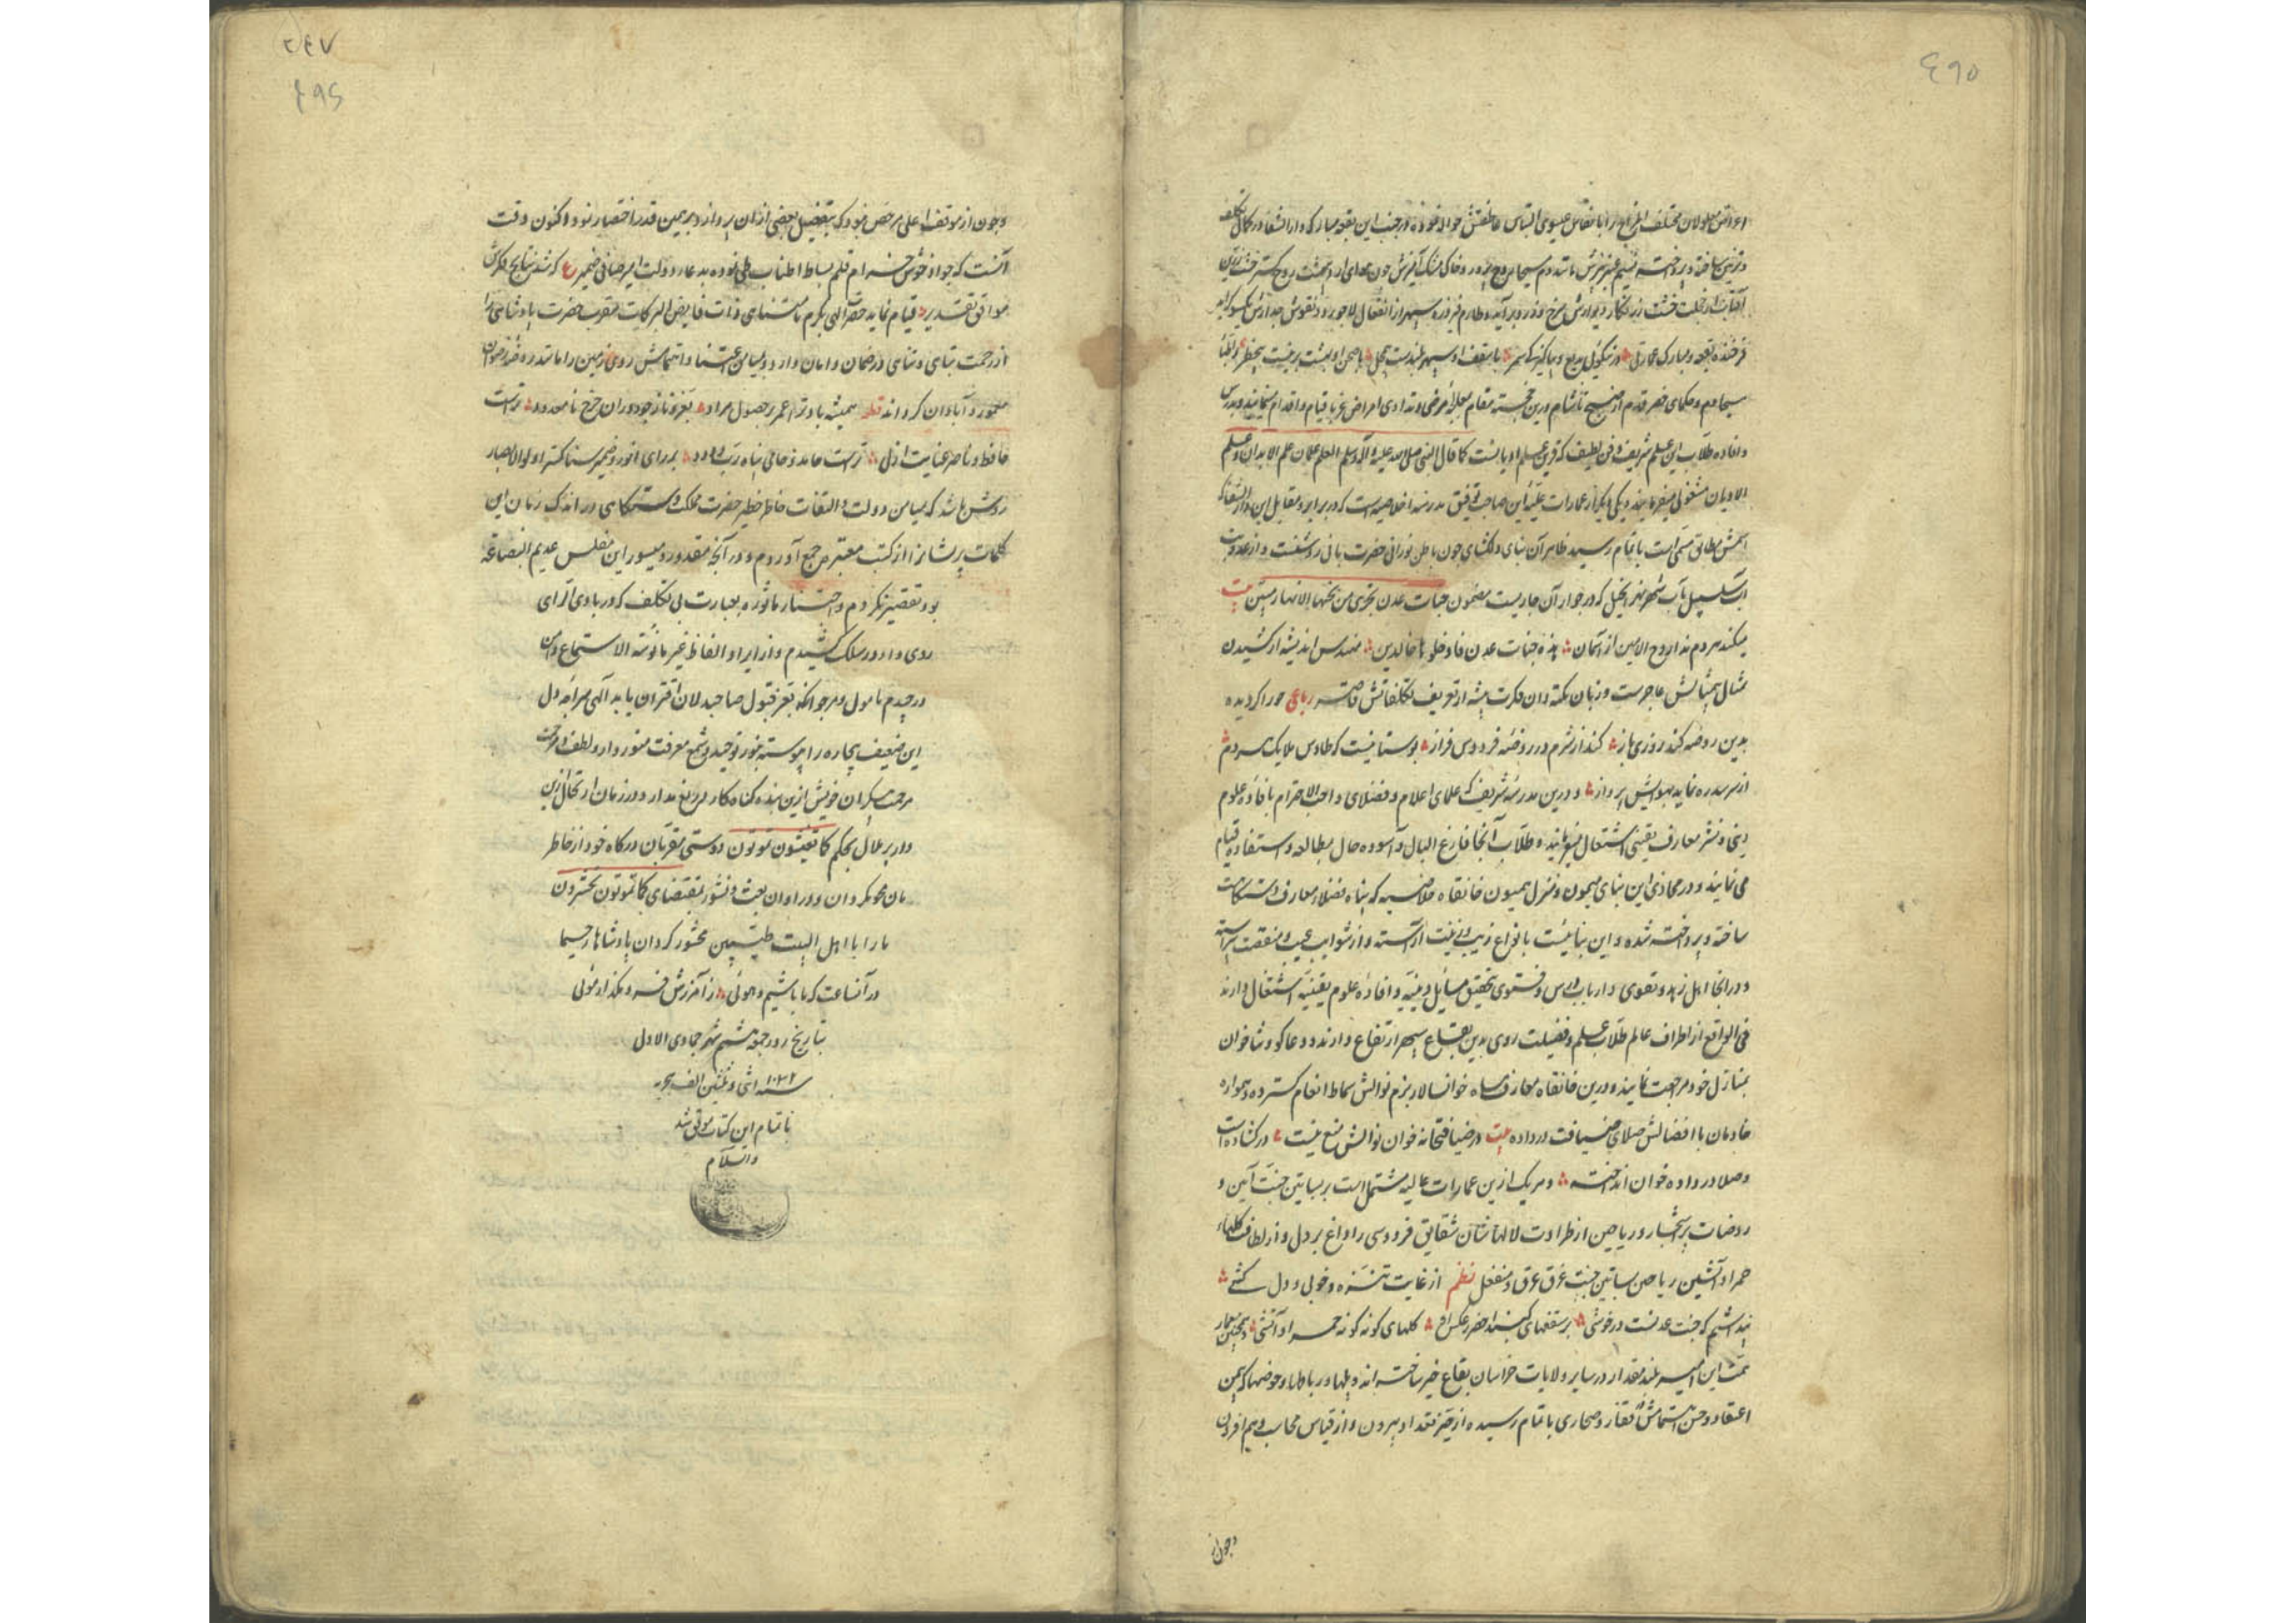 ٤٦٥
امراض معلولان مختلف المزاج را بانفاس عیسوی اقتباس عاطفتش حواله فرموده و در جنب این بقعه مبارک دار الشفا در کمال تکلف
و تزیین ساخته و پرداخته نسیم عنبر بیزش مانند دم مسیحا روح پرور و خاک مشک آمیزش چون هوای اردیبهشت روح گستر خشت زرین
آفتاب از خجلت خشت زرنگار دیوارش سرخ و زرد برآید و طارم فیروزه سپهر از انفعال لاجورد و نقوش جدارش
فرخنده بقعه و مبارک عمارتی در نیکویی بدیع و بپاکیزگی سمر با سقف او سپهر بلندست بی محل با صحن او بهشت برینست بی خطر و اطبا
مسیحا دم و حکمای خضر قدم از صبح تا شام درین خجسته مقام بمعالجه مرضی و تداوی امراض غربا قیام و اقدام مینمایند و بدرس
و افاده طلاب این علم شریف و فن لطیف که قرین علم ادیانست کما قال النبی صلی الله علیه و آله و سلم العلم علمان علم الابدان و علم
الادیان مشغولی میفرمایند و یکی دیگر از عمارات علیّه این صاحب توفیق مدرسه اخلاصیه است که در برابر و مقابل این دار الشفا که
اسمش مطابق مسمی است باتمام رسیده ظاهر آن بنای دلگشای چون باطن نورانی حضرت بانی روشنست و از عذوبت
آب سلسبیل مآب شهر نهر انجیل که در جوار آن جاریست مضمون جنات عدن تجری من تحتها الانهار مبین بیت
میکند هر دم ندا روح الامین از آسمان هذه جنات عدن فادخلوها خالدین مهندس اندیشه از کشیدن
مثال بیمثالش عاجزست و زبان نکته دان فکرت پیشه از تعریف تکلفاتش قاصر رباعی حورا که دیده
بدین روضه کند روزی باز کند از شرم در روضه فردوس فراز بوستانیست که طاوس ملایک هر دم
از سر سدره نماید بهوایش پرواز و درین مدرسه شریف که علمای اعلام و فضلای واجب الاحترام بافاده علوم
دینی و نشر معارف یقینی اشتغال میفرمایند و طلاب آنجا فارغ البال و آسوده حال بمطالعه و استفاده قیام
می نمایند و در محاذی این بنای میمون و منزل همیون خانقاه خلاصیه که پناه فضلاء معارف دستگاست
ساخته و پرداخته شده و این بنائیست بانواع زیب و زینت آراسته و از شوایب عیب و منقصت پیراسته
و در انجا اهل زهد و تقوی و ارباب درس و فتوی بتحقیق مسایل دینیّه و افاده علوم یقینیّه اشتغال دارند
فی الواقع از اطراف عالم طلاب علم و فضیلت روی بدین بقاع سپهر ارتفاع دارند و دعا گو و ثنا خوان
بمنازل خود مراجعت نمایند و درین خانقاه معارف پناه خوانسالار بزم نوالش سماط انعام گسترده و همواره
خادمان با افضالش صلای ضیافت در داده بیت در ضیافتخانه خوان نوالش منع نیست در گشاده است
و صلا در داده خوان انداخته و هر یک از ین عمارات عالیه مشتمل است بر بساتین جنّت آیین و
روضات پر اشجار و ریاحین از طراوت لالهاشان شقایق فردوسی را داغ بر دل و از لطافت گلهاء
حمرا و آتشین ریاحین بساتین جنّت غرق عرق و منفعل نظم از غایت تنزّه و خوبی و دل کشی
پنداشتم که جنت عدنست در خوشی بر سقفهای گنبد اخضر عکس گلهای گونه گونه حمرا و آتشی و همچنین معمار
همّت این امیر بلند مقدار در سایر ولایات خراسان بقاع خیر ساخته اند و پلها و رباطها و حوضها که بیمن
اعتقاد و حسن اهتمامش در قفار و صحاری باتمام رسیده از حیّز تعداد بیرون و از قیاس محاسب وهم افزون
و چون از
٢٤٧
٤٦٦
و چون از موقف اعلی مرخص نبود که بتفصیل بعضی از ان پردازد بر همین قدر اختصار نمود و اکنون وقت
آنست که جواد خوش خرام قلم بساط اطناب طی نموده بدعاء دولت امیر صافی ضمیر ع که شد نتایج فکرش
موافق تقدیر قیام نماید حضرت الهی بکرم نامتناهی ذات فایض البرکات مقرب حضرت پادشاهی را
از رحمت تباهی و تناهی در ضمان و امان دارد و بمیامن اعتنا و اهتمامش روی زمین را مانند روضه رضوان
معمور و آبادان گرداند قطعه همیشه باد ترا عمر بر حصول مراد بعز و ناز چو دوران چرخ نامحدود تراست
حافظ و ناصر عنایت ازلی تراست حامد و حامی پناه ربّ ودود بر رای انور و ضمیر سنا گستر اولو الابصار
روشن باشد که بمیامن دولت و التفات خاطر خطیر حضرت مملکت دستگاهی در اندک زمان این
کلمات پریشان را از کتب معتبره جمع آوردم و در آنچه مقدور و میسور این مفلس عدیم البضاعه
بود تقصیر نکردم و اخبار ماثوره بعبارت بی تکلف که در بادی الرای
روی داد در سلک کشیدم و از ایراد الفاظ غیر مانوسه الاستماع دامن
در چیدم مامول و مرجو آنکه بعز قبول صاحبدلان اقتران یابد الهی سراجه دل
این ضعیف بیچاره را پیوسته بنور توحید و شمع معرفت منور دار و لطف و مرحمت
مرحمت بیکران خویش ازین بنده گناه کار دریغ مدار و در زمان ارتحال ازین
دار پر ملال بحکم کما تعیشون تموتون دوستی مقربان درگاه خود از خاطر
مان محو مگردان و در اوان بعث و نشور بمقتضای کما تموتون تحشرون
ما را با اهل البیت طیّبین محشور گردان پادشاها رحیما
در آنساعت که ما باشیم و هوئی ز آمرزش فرو مگذار موئی
بتاریخ روز جمعه هشتم شهر جمادی الاول
سنه ۱۰۳۲ اثنی و ثلثین الف هجریه
باتمام این کتاب موفق شد
والسلام